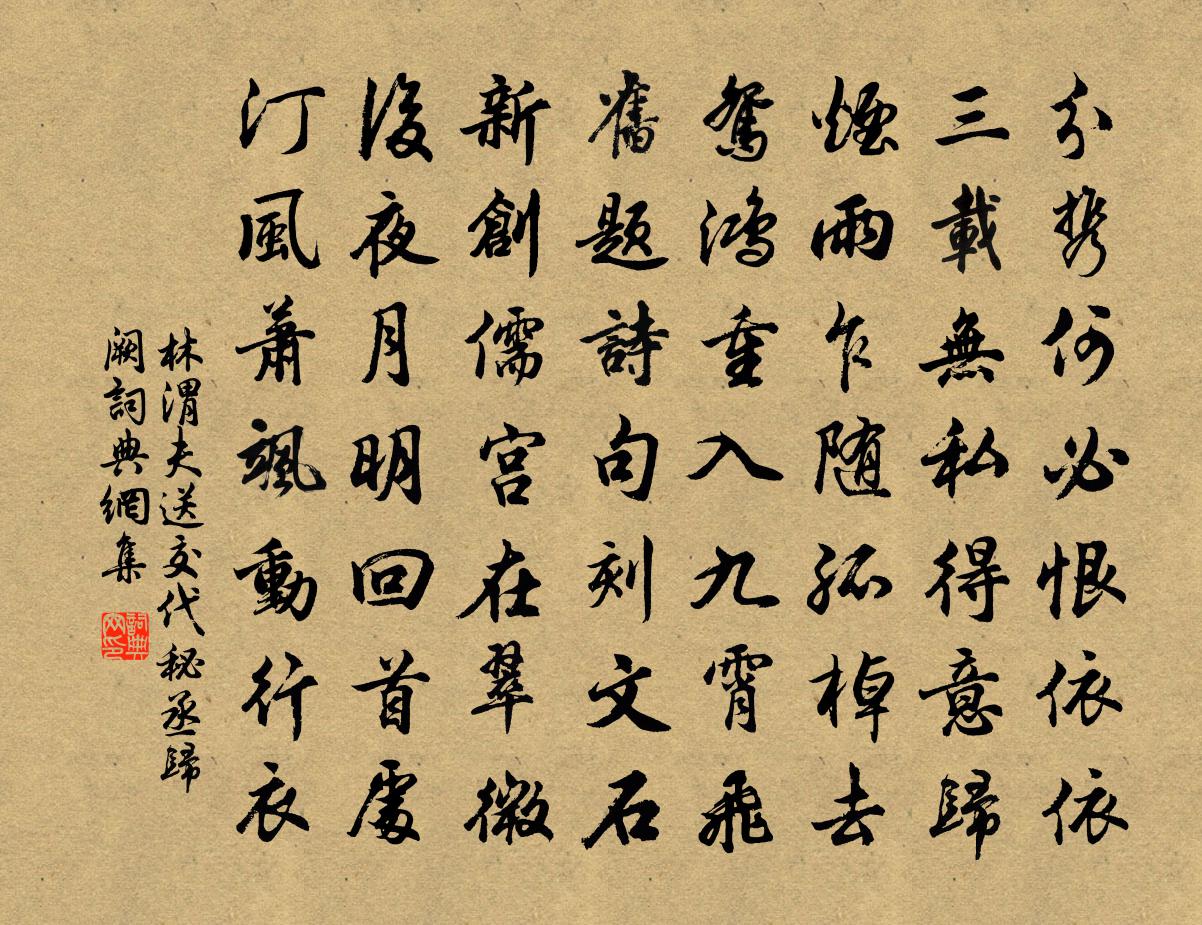 分携何必恨依依
三載無私得意歸
煙雨乍随孤棹去
鴛鴻重入九霄飛
舊题詩句刻文石
新創儒宫在翠微
後夜月明回首處
汀風萧颯動行衣
林渭夫送交代秘丞歸
阙詞典網集
詞典網印